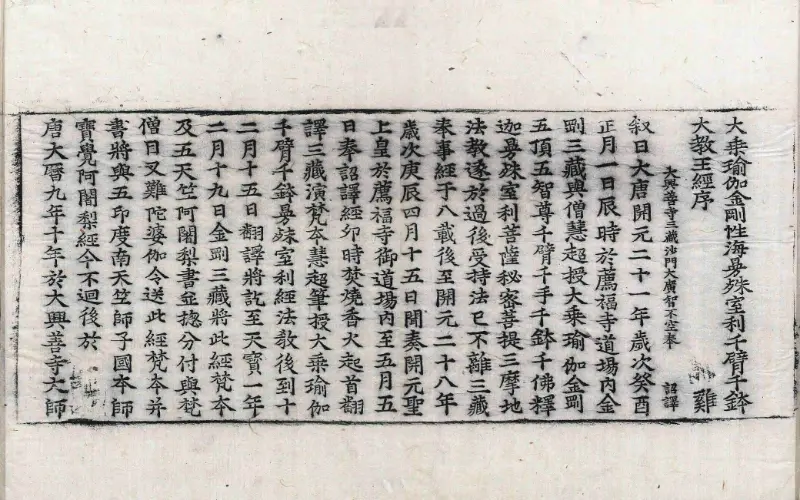 大乘瑜伽金剛性海曼殊室利千臂千鉢
大教王經序 雞
大興善寺三藏沙門大廣智不空奉 詔譯
叙曰大唐開元二十一年歲次癸酉
正月一日辰時於薦福寺道場內金
剛三藏與僧慧超授大乘瑜伽金剛
五頂五智尊千臂千手千鉢千佛釋
迦曼殊室利菩薩秘密菩提三摩地
法教遂於過後受持法已不離三藏
奉事經于八載後至開元二十八年
歲次庚辰四月十五日聞奏開元聖
上皇於薦福寺御道場內至五月五
日奉詔譯經卯時焚燒香火起首翻
譯三藏演梵本慧超筆授大乘瑜伽
千臂千鉢曼殊室利經法教後到十
二月十五日翻譯將訖至天寶一年
二月十九日金剛三藏將此經梵本
及五天竺阿闍梨書並捴分付與梵
僧目叉難陀婆伽令送此經梵本并
書將與五印度南天竺師子國本師
寶覺阿闍梨經今不迴後於
唐大曆九年十年於大興善寺大師